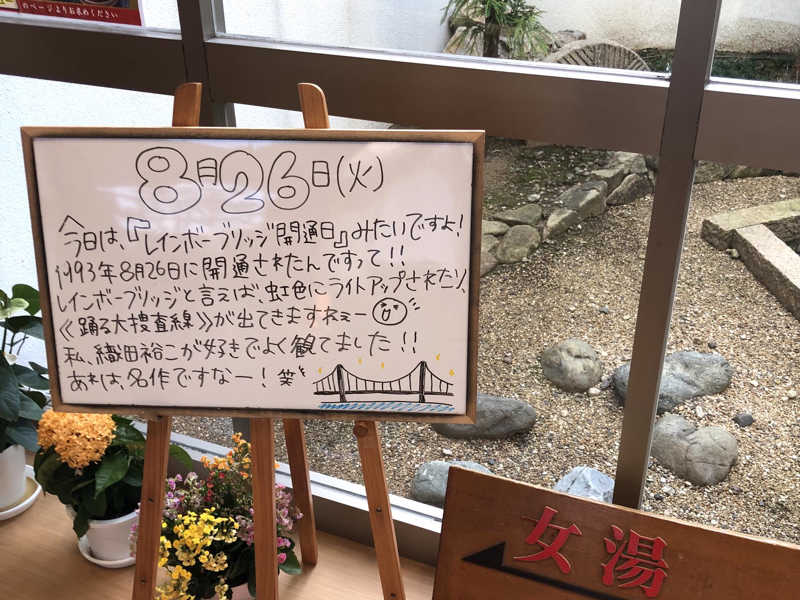 のページよりお求めください
8月26日(火)
今日は、『レインボーブリッジ開通日』みたいですよ!
1993年8月26日に開通されたんですって!!
レインボーブリッジと言えば、虹色にライトアップされたり、
《踊る大捜査線》が出てきますねぇー
私、織田裕二が好きでよく観てました!!
あれは、名作ですなー! 笑
女湯